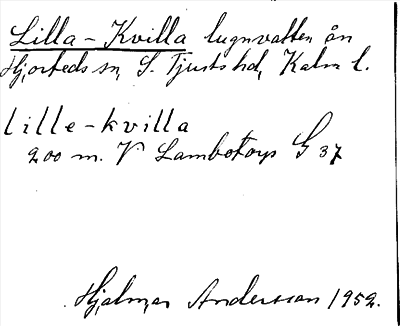 Lilla-Kvilla lugnvatten ån
Hjorteds sn, S. Tjusts hd, Kalm. l.
lille-kvilla
200 m. V Lambotorp G 37
Hjalmar Andersson 1952.